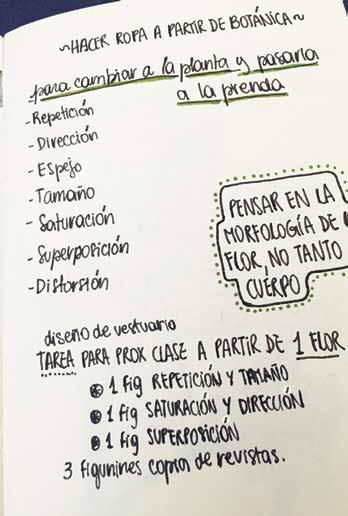 ~HACER ROPA A PARTIR DE BOTÁNICA~
para cambiar a la planta y pasarla
a la prenda
- Repetición
- Dirección
- Espejo
- Tamaño
- Saturación
- Superposición
- Distorsión
PENSAR EN LA
MORFOLOGÍA DE
FLOR, NO TANTO
CUERPO
diseño de vestuario
TAREA PARA PROX CLASE A PARTIR DE 1 FLOR
1 fig REPETICIÓN Y TAMAÑO
1 fig SATURACIÓN Y DIRECCIÓN
1 fig SUPERPOSICIÓN
3 figurines copia de revistas.